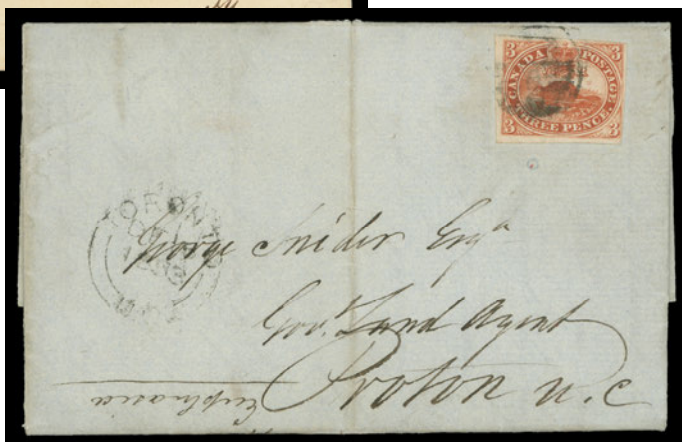 3 CANADA POSTAGE 3
3 THREE PENCE 3
TORONTO
George Snider Esqr
Govt Land Agent
Proton U.C
Euphrasia